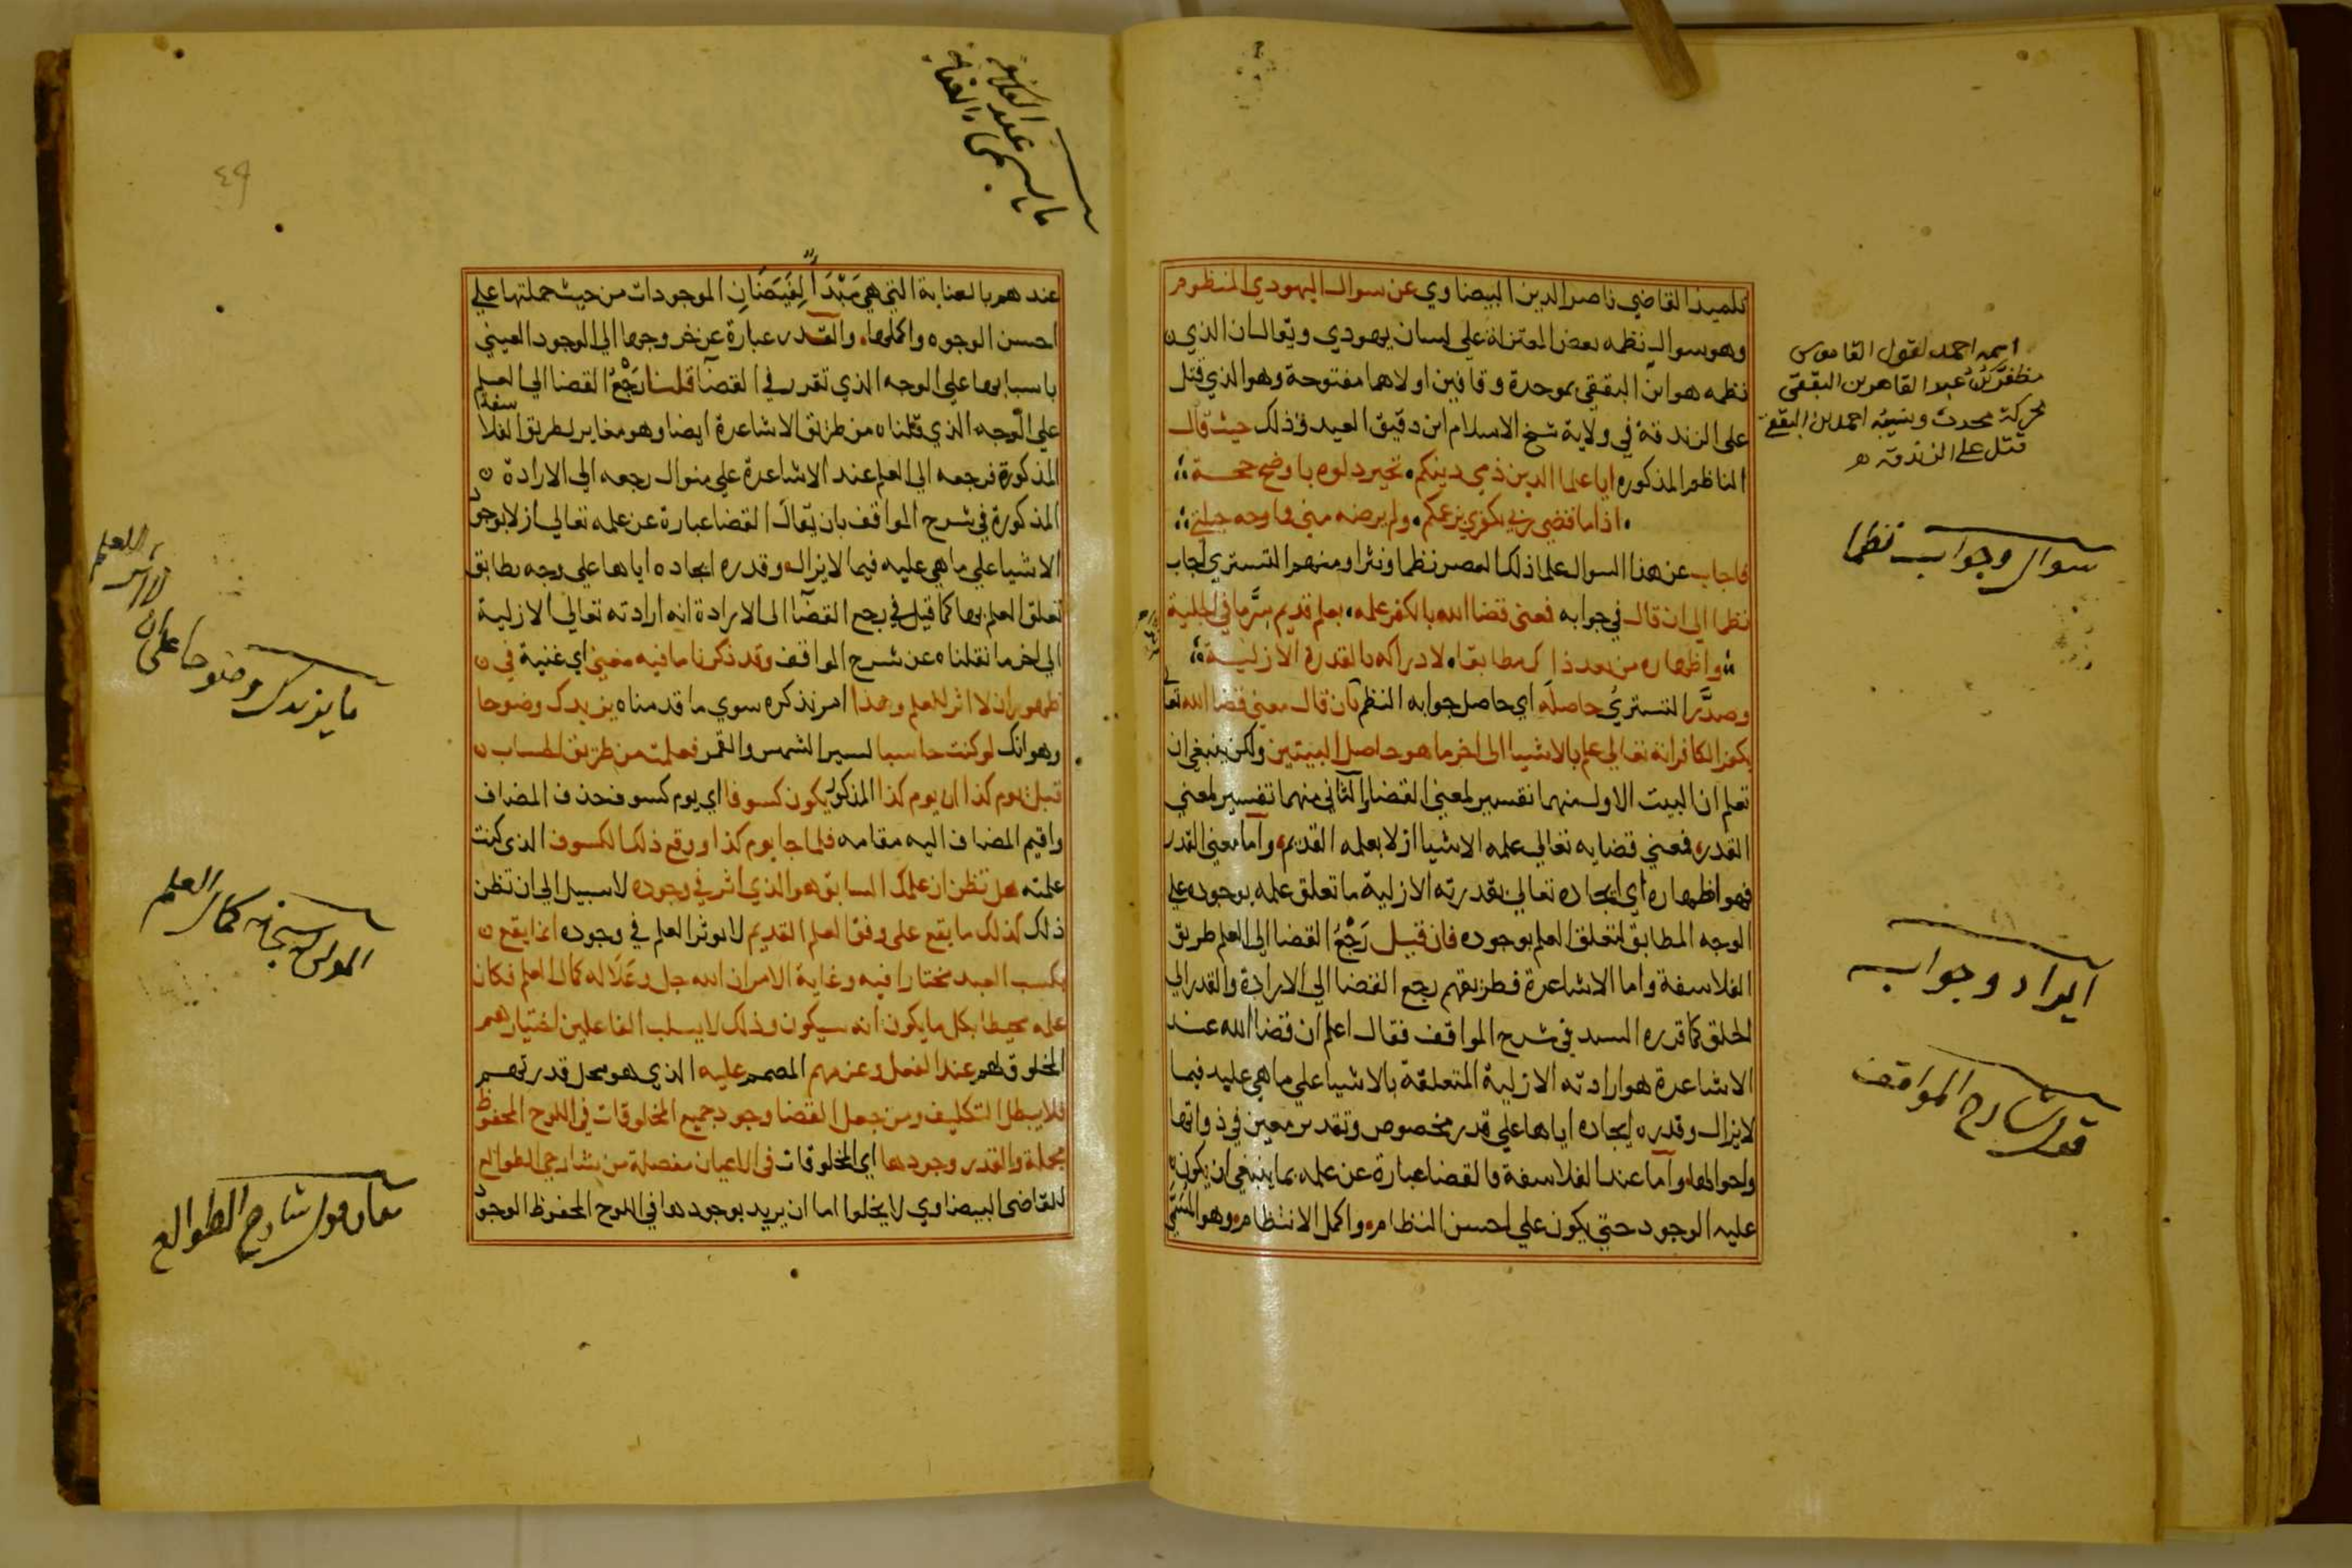 تلميذ القاضي ناصر الدين البيضاوي عن سوال اليهودي المنظوم
وهو سوال نظمه بعض المعتزلة علي لسان يهودي ويقال ان الذي
نظمه هو ابن البققي بموحدة وقافين اولاهما مفتوحة وهو الذي قتل
على الزندقة في ولاية شيخ الاسلام ابن دقيق العيد وذلك حيث قال
الناظم المذكور ايا علما الدين ذمي دينكم تحير دلوه باوضح حجة
اذا ما قضي ربي بكفري بزعكم ولم يرضه مني فما وجه حيلتي
فاجاب عن هذا السوال علما ذلك العصر نظما ونثرا ومنهم التستري اجاب
نظما الي ان قال في جوابه فمعنى قضا الله بالكفر علمه بعلم قديم سر ما في الجبلية
واظهاره من بعد ذاك مطابقا لادراكه بالقدرة الازلية
وصدر التستري حاصله اي حاصل جوابه النظم بان قال معنى قضا الله تعا
بكفر الكافر انه تعالي علم بالاشيا الى اخر ما هو حاصل البيتين ولكن ينبغي ان
تعلم ان البيت الاول منهما تفسير لمعني القضا والثاني منهما تفسير لمعني
القدر فمعني قضايه تعالي علمه الاشيا ازلا بعلمه القديم واما معني القدر
فهو اظهاره اي ايجاده تعالي بقدرته الازلية ما تعلق علمه بوجوده علي
الوجه المطابق لتعلق العلم بوجوده فان قيل رَجْعُ القضا الي العلم طريق
الفلاسفة واما الاشاعرة فطريقهم رجع القضا الي الارادة والقدر الي
الخلق كما قرره السيد في شرح المواقف فقال اعلم ان قضا الله عند
الاشاعرة هو ارادته الازلية المتعلقة بالاشيا علي ما هي عليه فيما
لا يزال وقدره ايجاده اياها علي قدر مخصوص وتقدير معين في ذواتها
واحوالها واما عند الفلاسفة فالقضا عبارة عن علمه بما ينبغي ان يكون
عليه الوجود حتي يكون علي احسن النظام واكمل الانتظام وهو المسمي
اسمه احمد لقول القاموس
مظفر بن عبد القاهر بن البققي
محركة محدث ونسيبه احمد بن البققي
قتل على الزندقة
سوال وجواب نظما
ايراد وجواب
قول شارح المواقف
ما يسمى عند الفلاسفة
عندهم بالعناية التي هي مَبْدَأ لِفَيَضَانِ الموجودات من حيث جملتها علي
احسن الوجوه واكملها والقدر عبارة عن خروجها الي الوجود العيني
باسبابها علي الوجه الذي تقرر في القضا قلنا رَجْعُ القضا الي العلم
علي الوجه الذي قلناه من طريق الاشاعرة ايضا وهو مغاير لطريق الفلاسفة
المذكورة فرجعه الي العلم عند الاشاعرة علي منوال رجعه الي الارادة
المذكورة في شرح المواقف بان يقال القضا عبارة عن علمه تعالي ازلا بوجود
الاشيا علي ما هي عليه فيما لا يزال وقدره ايجاده اياها علي وجه يطابق
تعلق العلم بها كما قيل في رجع القضا الى الارادة انه ارادته تعالي الازلية
الي اخر ما نقلناه عن شرح المواقف وقد ذكرنا ما فيه مغني اي غنية في
ظهور ان لا اثر للعلم وهذا امر نذكره سوي ما قدمناه يزيدك وضوحا
وهو انك لو كنت حاسبا لسير الشمس والقمر فعلمت من طريق الحساب
قبل يوم كذا ان يوم كذا المذكور يكون كسوفا اي يوم كسوف فحذف المضاف
واقيم المضاف اليه مقامه فلما جا يوم كذا ووقع ذلك الكسوف الذي كنت
علمته هل تظن ان علمك السابق هو الذي اثر في وجوده لا سبيل الي ان تظن
ذلك كذلك ما يقع على وفق العلم القديم لا يوثر العلم في وجوده انما يقع
بكسب العبد مختارا فيه وغاية الامر ان الله جل وعلا له كمال العلم فكان
علمه محيطا بكل ما يكون انه سيكون وذلك لا يسلب الفاعلين اختيارهم
المخلوق لهم عند الفعل وعزمهم المصمم عليه الذي هو محل قدرتهم
فلا يبطل التكليف ومن جعل القضا وجود جميع المخلوقات في اللوح المحفوظ
مجملة والقدر وجودها اي المخلوقات في الاعيان مفصلة من شارحي الطوالع
للقاضي البيضاوي لا يخلوا اما ان يريد بوجودها في اللوح المحفوظ الوجود
٤٩
ما يزيدك وضوحا علي ان
لا اثر للعلم
المولى سبحانه كمال العلم
قول شارح الطوالع